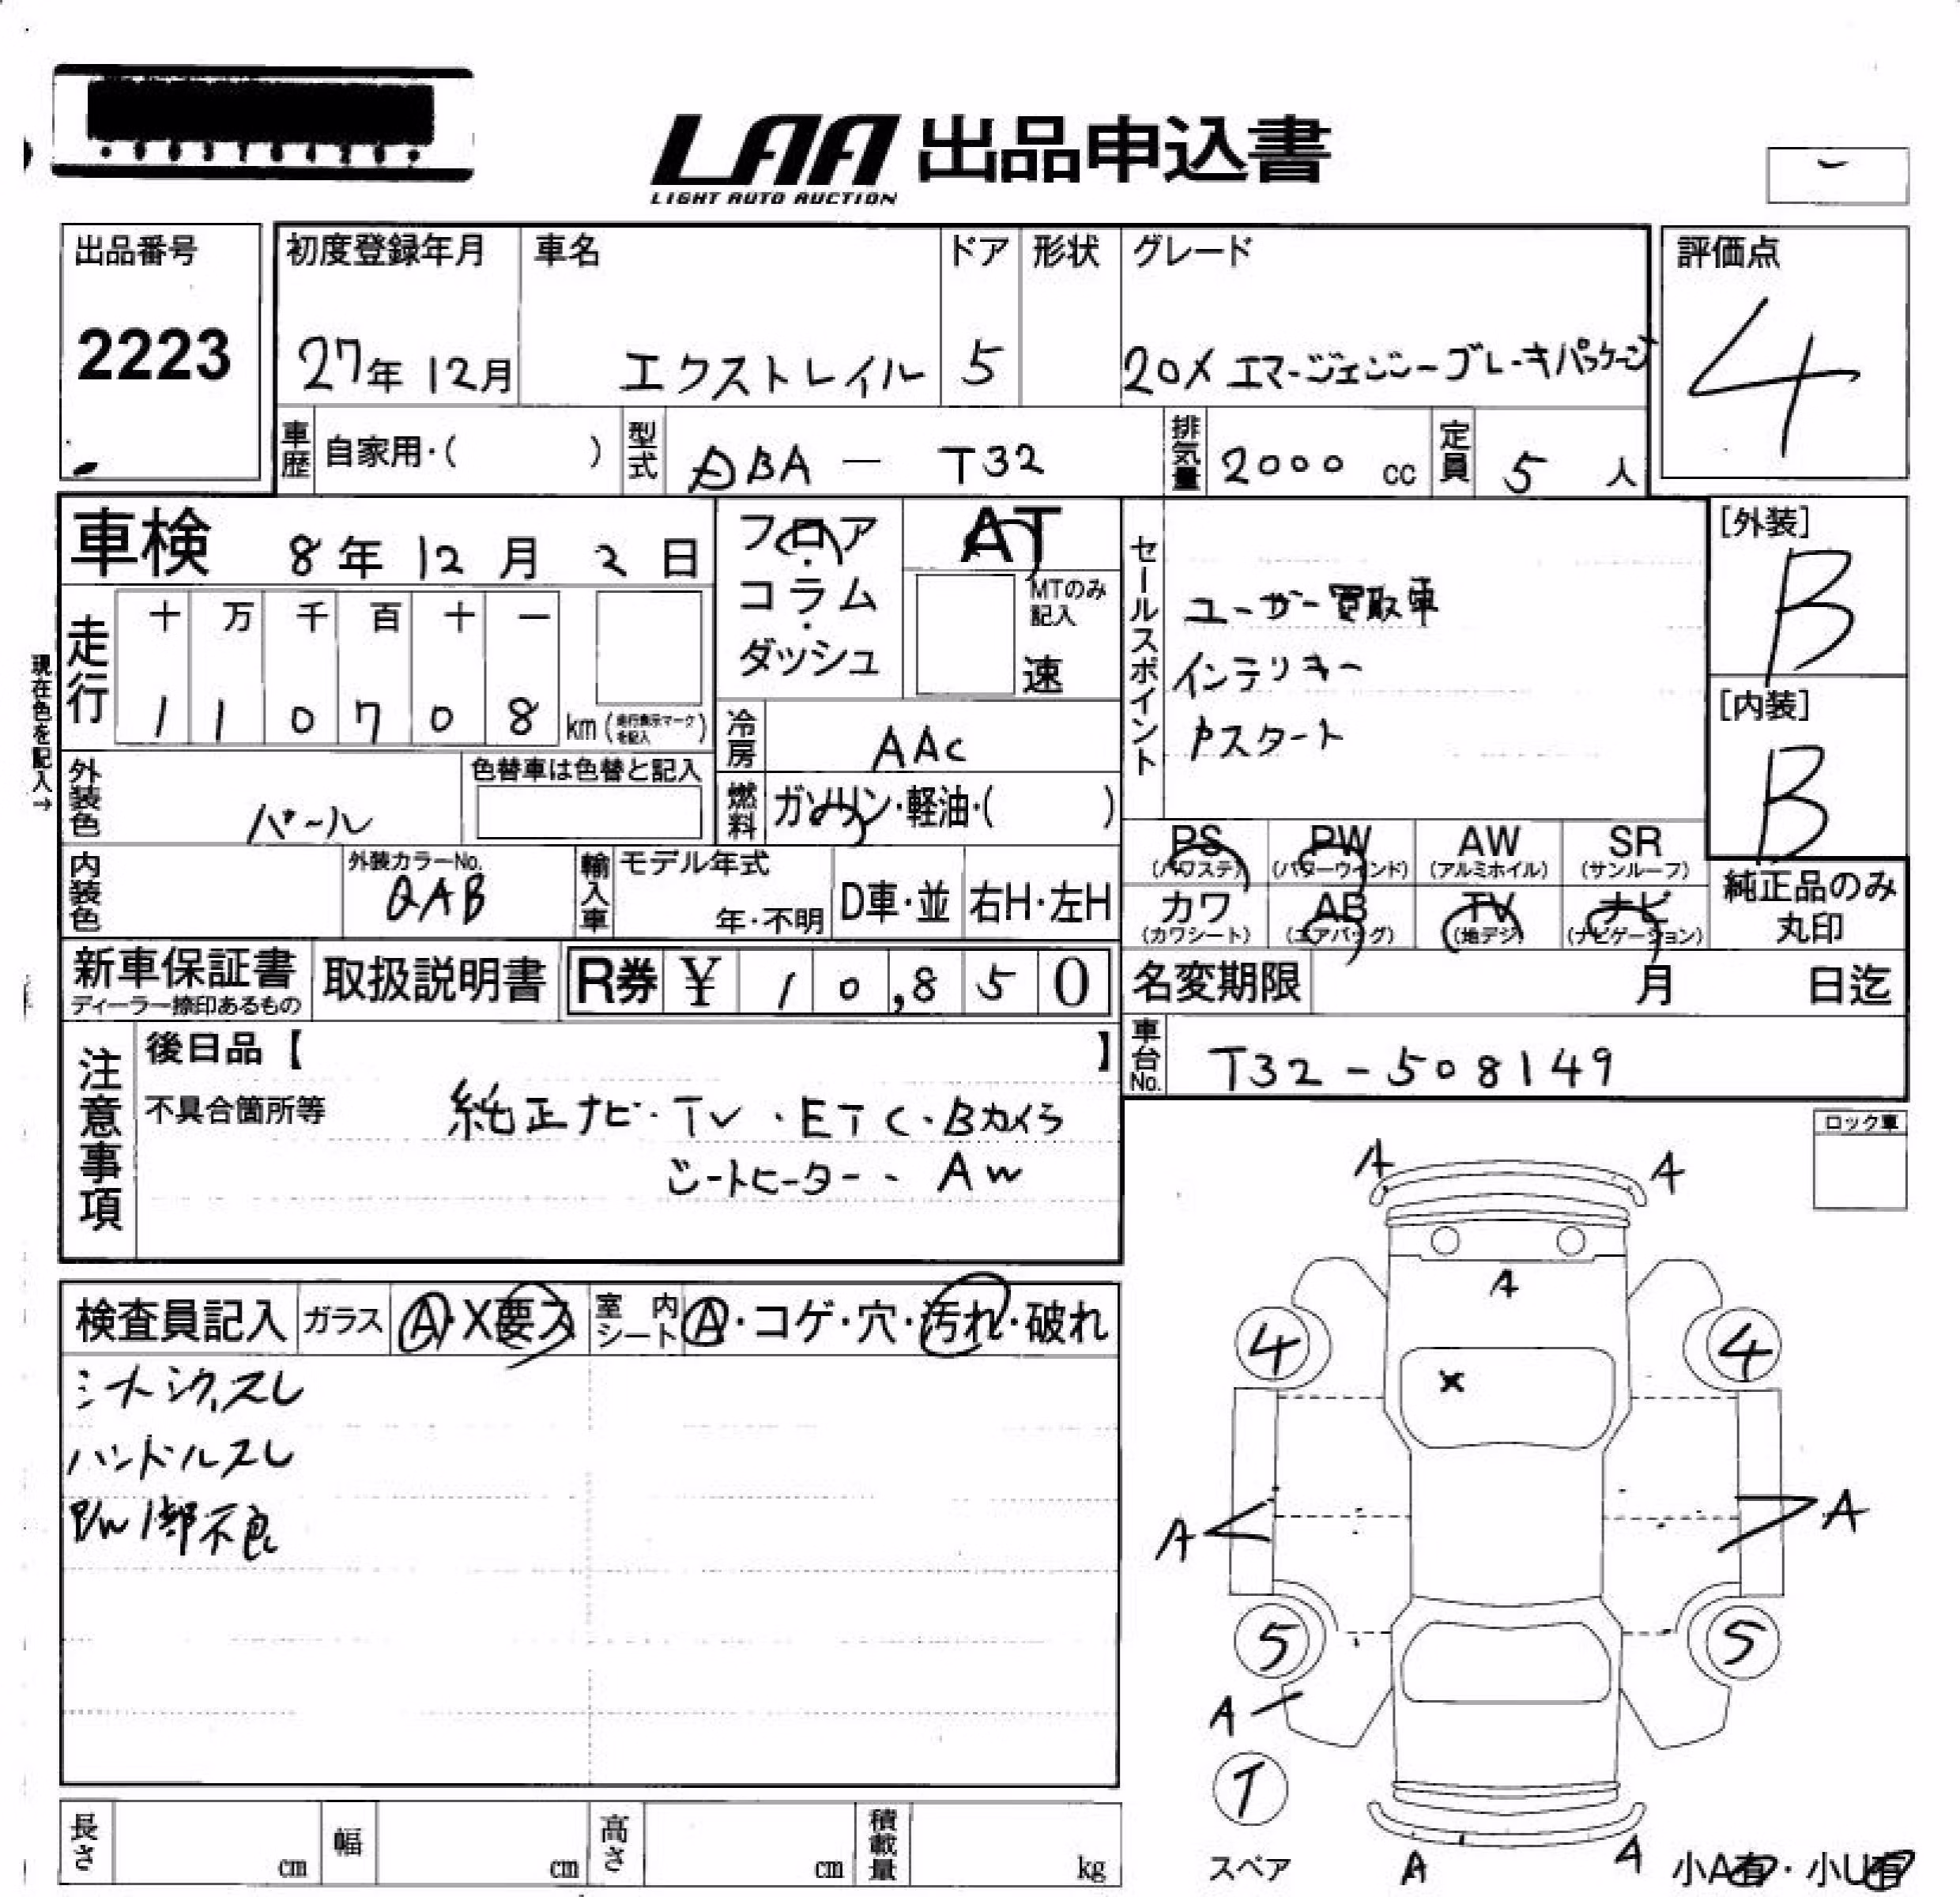 LAA 出品申込書
LIGHT AUTO AUCTION
出品番号
2223
初度登録年月
27年 12月
車名
エクストレイル
ドア
5
形状
グレード
20X エマージェンシーブレーキパッケージ
評価点
4
車歴
自家用・( )
型式
DBA - T32
排気量
2000 cc
定員
5 人
車検 8年 12月 2日
フロア・コラム・ダッシュ
AT
MTのみ記入
速
セールスポイント
ユーザー買取車
インテリキー
Pスタート
[外装]
B
[内装]
B
現在色を記入→
走行
十 万 千 百 十 一
1 1 0 7 0 8 km (走行表示マークを記入)
冷房
AAC
外装色
パール
色替車は色替と記入
燃料
ガソリン・軽油・( )
PS (パワステ)
PW (パワーウィンド)
AW (アルミホイル)
SR (サンルーフ)
カワ (カワシート)
AB (エアバッグ)
TV (地デジ)
ナビ (ナビゲーション)
純正品のみ丸印
内装色
外装カラーNo.
QAB
輸入車
モデル年式
年・不明
D車・並
右H・左H
新車保証書
ディーラー捺印あるもの
取扱説明書
R券 ¥ 1 0,8 5 0
名変期限 月 日迄
車台No.
T32-508149
注意事項
後日品【 】
不具合箇所等
純正ナビ・TV・ETC・Bカメラ
シートヒーター・AW
ロック車
検査員記入
ガラス
A・X要ス
室内シート
A・コゲ・穴・汚れ・破れ
ハンドルスレ
A A
A
4 4
X
A A
5 5
A
T
スペア
A A
小A有・小U有
長さ cm
幅 cm
高さ cm
積載量 kg